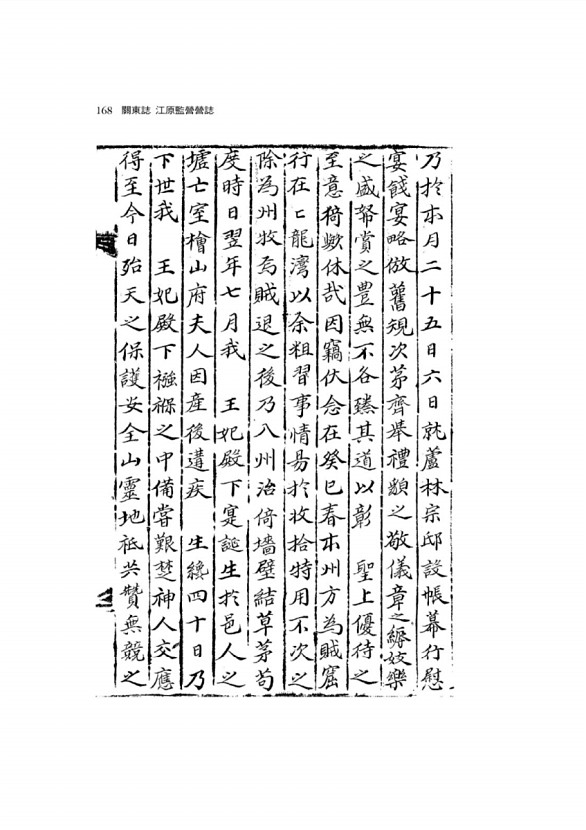 168 關東誌 江原監營營誌
乃於本月二十五日六日就蘆林宗邸設帳幕行慰
宴餞宴略倣舊規次苐齊舉禮類之敬儀章之縟妓樂
之盛幣賞之豊無不各臻其道以彰 聖上優待之
至意猗歟休哉因竊伏念在癸巳春本州方為賊窟
行在匕龍灣以余粗習事情易於收拾特用不次之
除為州牧焉賊退之後乃入州治倚墻壁結草茅苟
度時日翌年七月我 王妃殿下寔誕生於邑人之
墟亡室檜山府夫人因産後遘疾 生纔四十日乃
下世我 王妃殿下襁褓之中備嘗艱楚神人交應
得至今日殆天之保護安全山靈地祗共贊無競之